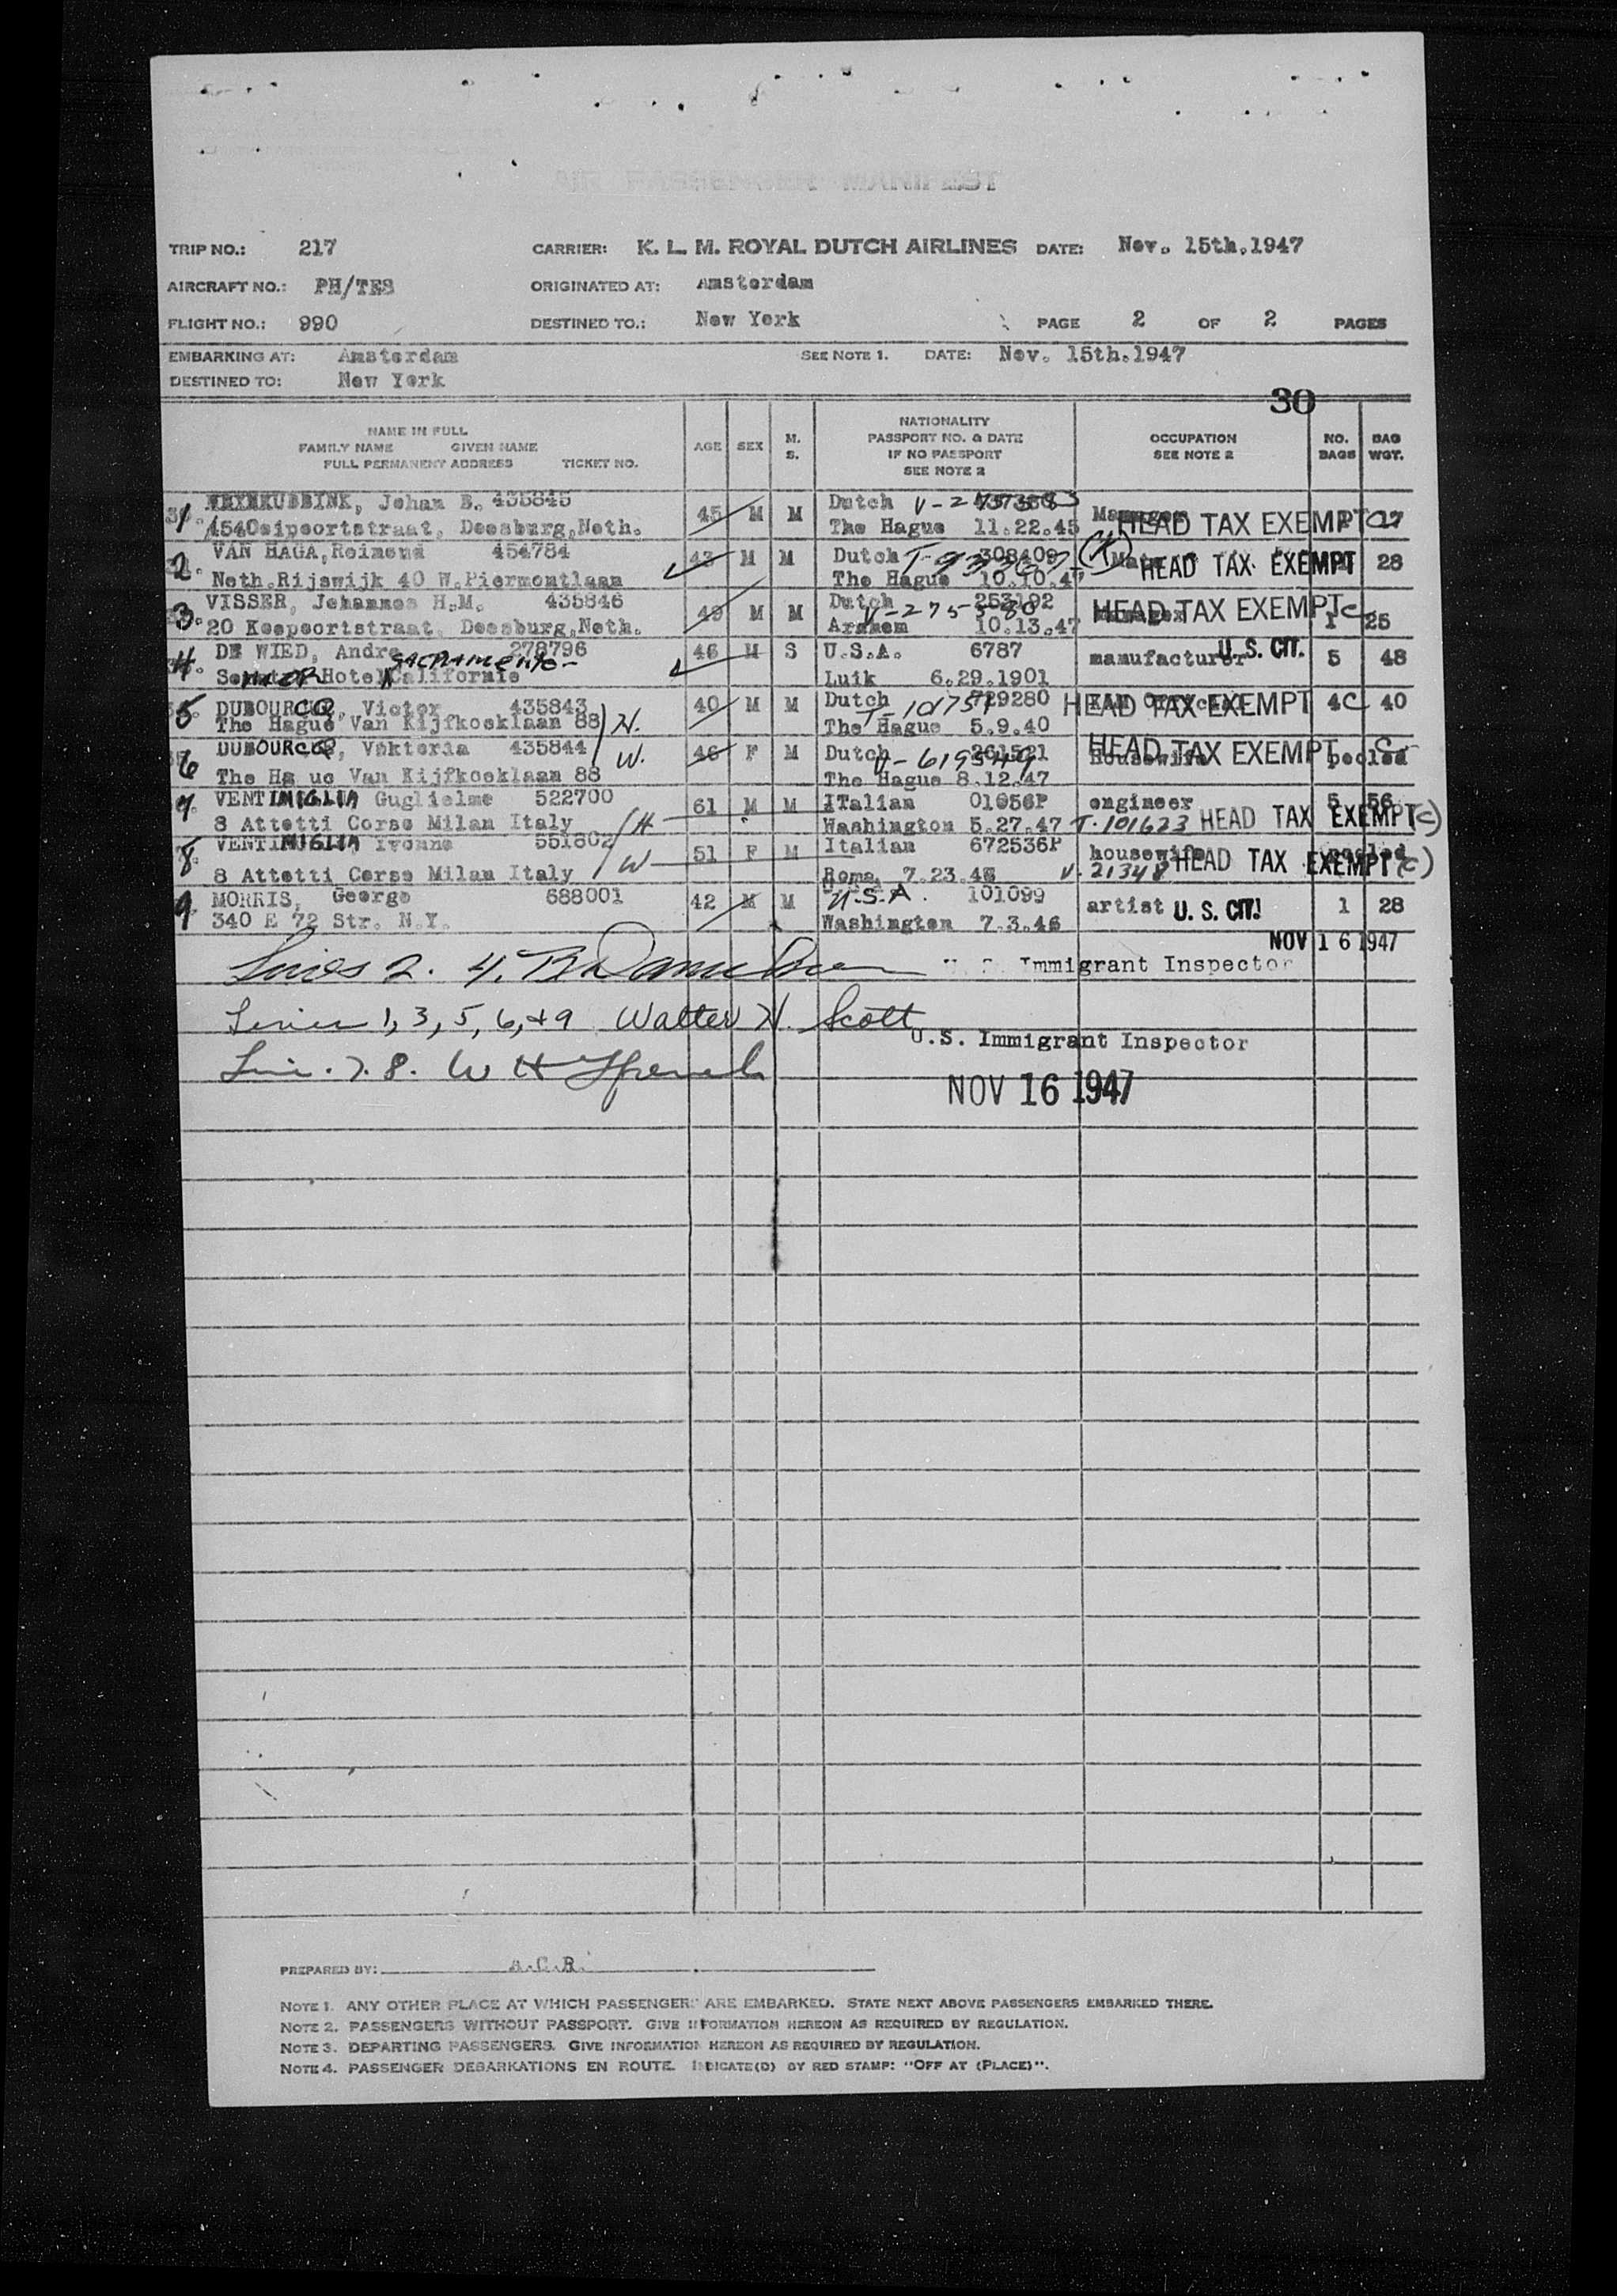 AIR PASSENGER MANIFEST
TRIP NO.: 217 CARRIER: K. L. M. ROYAL DUTCH AIRLINES DATE: Nov. 15th.1947
AIRCRAFT NO.: PH/TES ORIGINATED AT: Amsterdam
FLIGHT NO.: 990 DESTINED TO.: New York PAGE 2 OF 2 PAGES
EMBARKING AT: Amsterdam SEE NOTE 1. DATE: Nov. 15th.1947
DESTINED TO: New York
30
NAME IN FULL
FAMILY NAME GIVEN NAME
FULL PERMANENT ADDRESS TICKET NO.
AGE SEX M. S.
NATIONALITY
PASSPORT NO. & DATE
IF NO PASSPORT
SEE NOTE 2
OCCUPATION
SEE NOTE 2
NO. BAGS
BAG WGT.
1 Johan B. 435845 45 M M Dutch
Deesburg,Neth. The Hague 11.22.45 HEAD TAX EXEMPT 17
2. VAN HAGA, Reimond 454784 43 M M Dutch 308409 HEAD TAX EXEMPT 28
Neth.Rijswijk 40 W.Piermontlaan The Hague 10.10.47
3. VISSER, Johannes H.M. 435846 49 M M Dutch 253192 HEAD TAX EXEMPT C 1 25
20 Keepoortstraat, Deesburg,Neth. Arnhem 10.13.47
4. DE WIED, Andre 278796 46 M S U.S.A. 6787 manufacturer U. S. CIT. 5 48
Hotel SACRAMENTO Californie Luik 6.29.1901
5 DUBOURCQ, Victor 435843 H. 40 M M Dutch 729280 HEAD TAX EXEMPT 4C 40
The Hague Van Kijfkoeklaan 88 The Hague 5.9.40
6 DUBOURCQ, Vikteria 435844 W. 46 F M Dutch 261521 Housewife HEAD TAX EXEMPT C pooled
The Ha ue Van Kijfkoeklaan 88 V-619549 The Hague 8.12.47
7. VENTIMIGLIA Guglielme 522700 H 61 M M ITalian 01056P engineer 5 56
8 Attetti Corse Milan Italy Washington 5.27.47 T-101623 HEAD TAX EXEMPT (C)
8. VENTIMIGLIA Ivonne 551802 W 51 F M Italian 672536P housewife pooled
8 Attetti Corse Milan Italy Roma, 7.23.46 V-21348 HEAD TAX EXEMPT (C)
9. MORRIS, George 688001 42 M M U.S.A. 101099 artist U. S. CIT. 1 28
340 E 72 Str. N.Y. Washington 7.3.46
NOV 16 1947
Lines 2. 4. U. S. Immigrant Inspector
Lines 1, 3, 5, 6, &9 Walter H. Scott
U.S. Immigrant Inspector
Line. 7. 8. W H
NOV 16 1947
PREPARED BY: A.C.R.
NOTE 1. ANY OTHER PLACE AT WHICH PASSENGERS ARE EMBARKED. STATE NEXT ABOVE PASSENGERS EMBARKED THERE.
NOTE 2. PASSENGERS WITHOUT PASSPORT. GIVE INFORMATION HEREON AS REQUIRED BY REGULATION.
NOTE 3. DEPARTING PASSENGERS. GIVE INFORMATION HEREON AS REQUIRED BY REGULATION.
NOTE 4. PASSENGER DEBARKATIONS EN ROUTE. INDICATE(D) BY RED STAMP: "OFF AT (PLACE)".